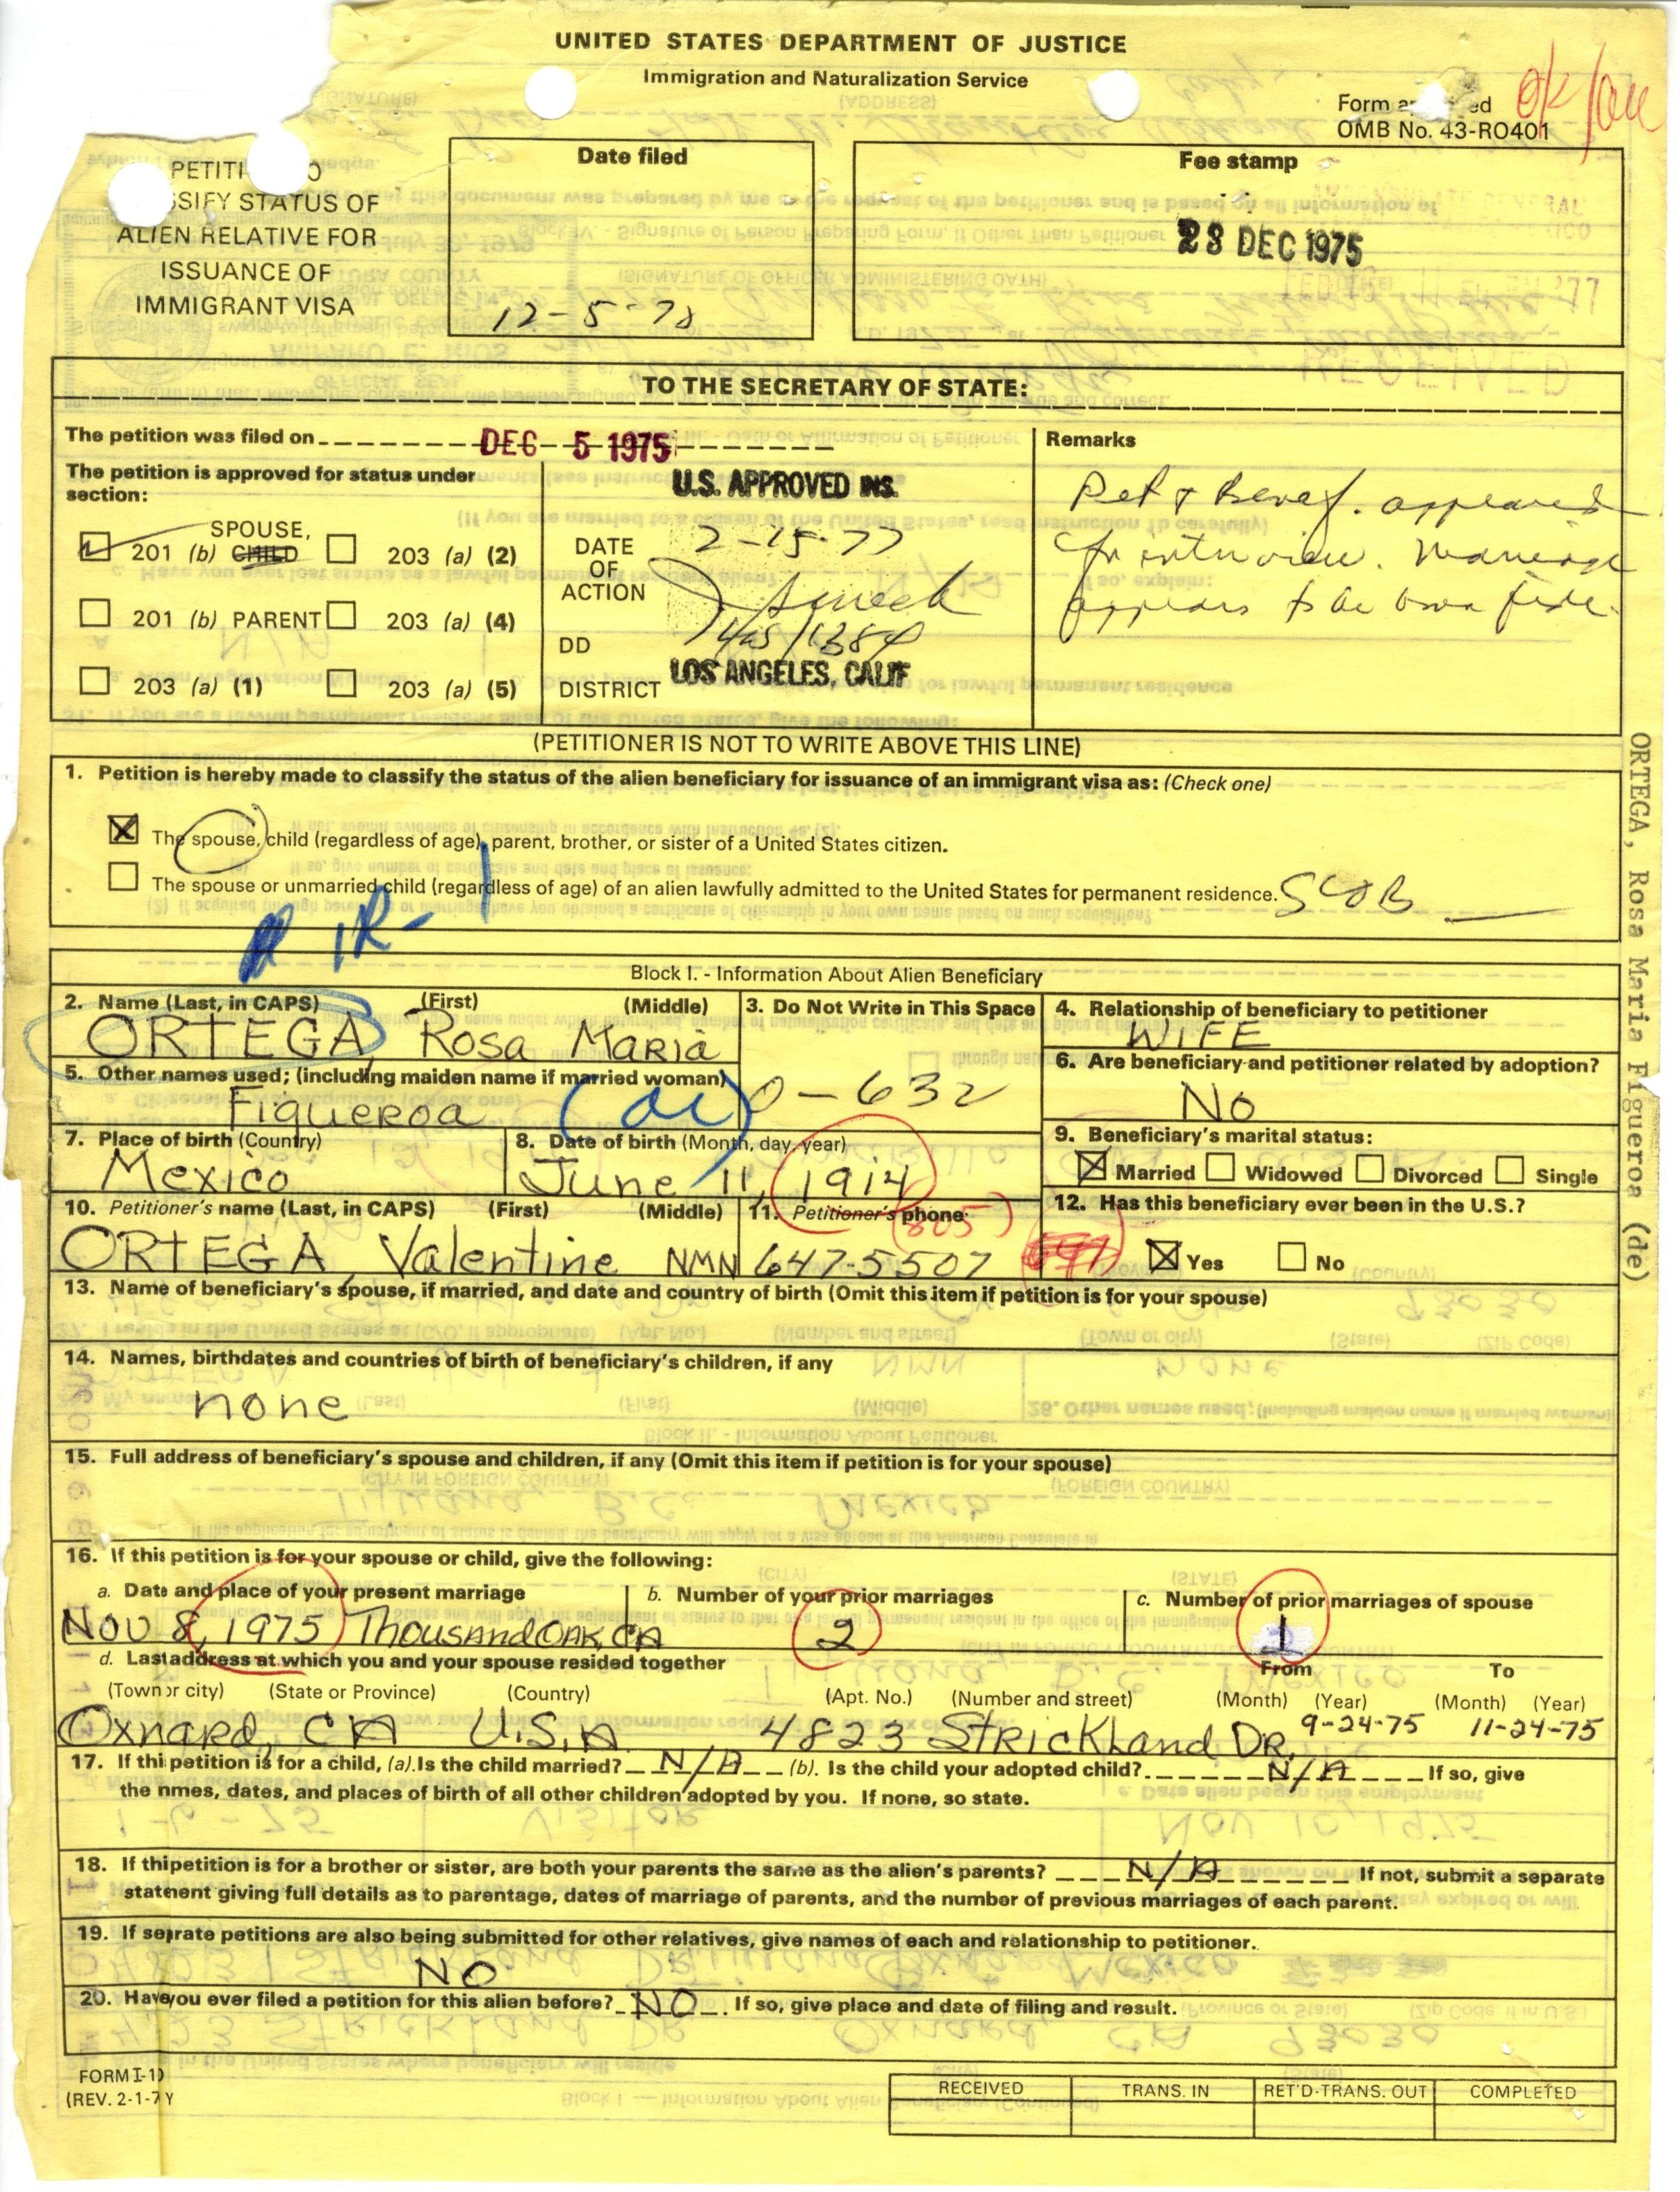 UNITED STATES DEPARTMENT OF JUSTICE
Immigration and Naturalization Service
OMB No. 43-RO401
OK
Date filed
12-5-78
Fee stamp
23 DEC 1975
SIFY STATUS OF
ALIEN RELATIVE FOR
ISSUANCE OF
IMMIGRANT VISA
TO THE SECRETARY OF STATE:
The petition was filed on DEC 5 1975
The petition is approved for status under section:
SPOUSE,
201 (b) CHILD 203 (a) (2)
201 (b) PARENT 203 (a) (4)
203 (a) (1) 203 (a) (5)
U.S. APPROVED INS.
DATE OF ACTION 2-15-77
DD
DISTRICT LOS ANGELES, CALIF
Remarks
Pet & Benef. appeared
for interview. Marriage
appears to be bona fide.
(PETITIONER IS NOT TO WRITE ABOVE THIS LINE)
1. Petition is hereby made to classify the status of the alien beneficiary for issuance of an immigrant visa as: (Check one)
The spouse, child (regardless of age), parent, brother, or sister of a United States citizen.
The spouse or unmarried child (regardless of age) of an alien lawfully admitted to the United States for permanent residence.
IR-1
Block I. - Information About Alien Beneficiary
2. Name (Last, in CAPS) (First) (Middle)
ORTEGA, Rosa Maria
3. Do Not Write in This Space
0-632
4. Relationship of beneficiary to petitioner
WIFE
5. Other names used; (including maiden name if married woman)
Figueroa (de)
6. Are beneficiary and petitioner related by adoption?
No
7. Place of birth (Country)
Mexico
8. Date of birth (Month, day, year)
June 11, 1914
9. Beneficiary's marital status:
Married Widowed Divorced Single
10. Petitioner's name (Last, in CAPS) (First) (Middle)
ORTEGA Valentine NMN
11. Petitioner's phone
(805)
647-5507
12. Has this beneficiary ever been in the U.S.?
Yes No
13. Name of beneficiary's spouse, if married, and date and country of birth (Omit this item if petition is for your spouse)
14. Names, birthdates and countries of birth of beneficiary's children, if any
none
15. Full address of beneficiary's spouse and children, if any (Omit this item if petition is for your spouse)
16. If this petition is for your spouse or child, give the following:
a. Date and place of your present marriage
Nov 8, 1975 Thousand Oak, CA
b. Number of your prior marriages
2
c. Number of prior marriages of spouse
1
d. Last address at which you and your spouse resided together
From To
(Town or city) (State or Province) (Country) (Apt. No.) (Number and street) (Month) (Year) (Month) (Year)
Oxnard, CA U.S.A 4823 Strickland Dr. 9-24-75 11-24-75
17. If thi petition is for a child, (a). Is the child married? N/A (b). Is the child your adopted child? N/A If so, give
the nmes, dates, and places of birth of all other children adopted by you. If none, so state.
18. If thi petition is for a brother or sister, are both your parents the same as the alien's parents? N/A If not, submit a separate
statment giving full details as to parentage, dates of marriage of parents, and the number of previous marriages of each parent.
19. If seprate petitions are also being submitted for other relatives, give names of each and relationship to petitioner.
NO
20. Have you ever filed a petition for this alien before? NO If so, give place and date of filing and result.
FORM I-1
(REV. 2-1-7 Y
RECEIVED TRANS. IN RET'D-TRANS. OUT COMPLETED
ORTEGA, Rosa Maria Figueroa (de)